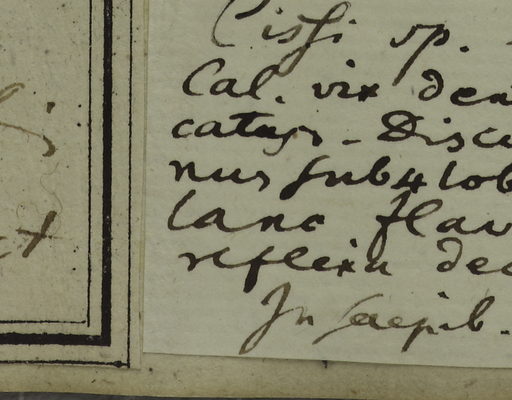 Cissi sp.
Cal. vix den
catus. Discu
nus sub 4 lob
lanc flav
reflexa dec
In saepib.